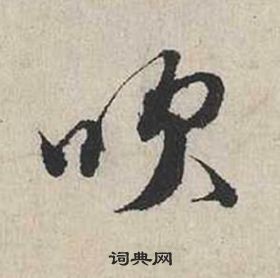 吹
词典网